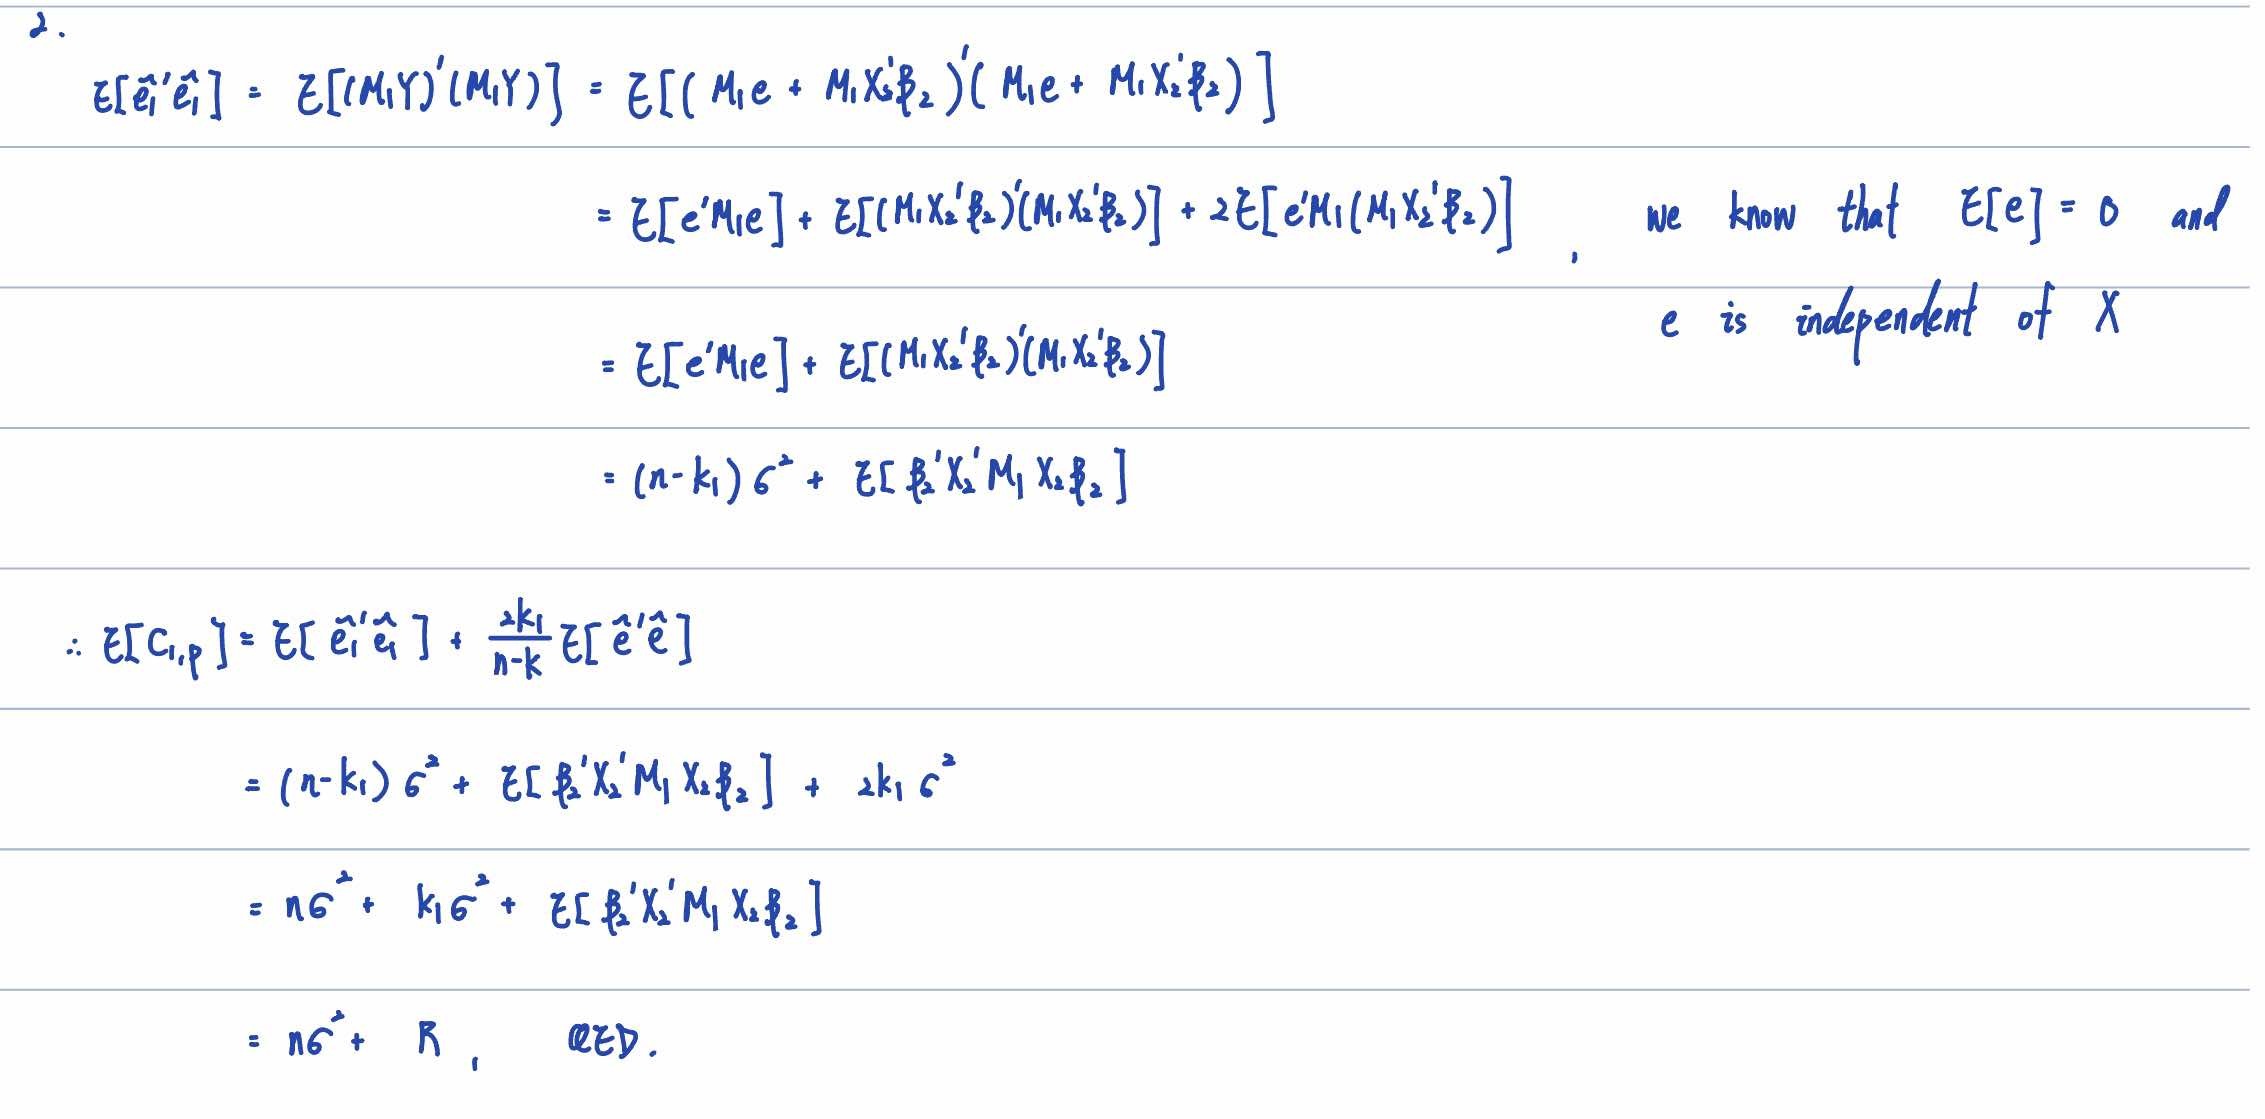 2.
E[ê₁'ê₁] = E[(M₁Y)'(M₁Y)] = E[(M₁e + M₁X₂'β₂)'(M₁e + M₁X₂'β₂)]
= E[e'M₁e] + E[(M₁X₂'β₂)'(M₁X₂'β₂)] + 2E[e'M₁(M₁X₂'β₂)] , we know that E[e] = 0 and
e is independent of X
= E[e'M₁e] + E[(M₁X₂'β₂)'(M₁X₂'β₂)]
= (n-k₁)σ² + E[β₂'X₂'M₁X₂β₂]
∴ E[C₁,p] = E[ê₁'ê₁] + 2k₁/(n-k) E[ê'ê]
= (n-k₁)σ² + E[β₂'X₂'M₁X₂β₂] + 2k₁σ²
= nσ² + k₁σ² + E[β₂'X₂'M₁X₂β₂]
= nσ² + R , QED.